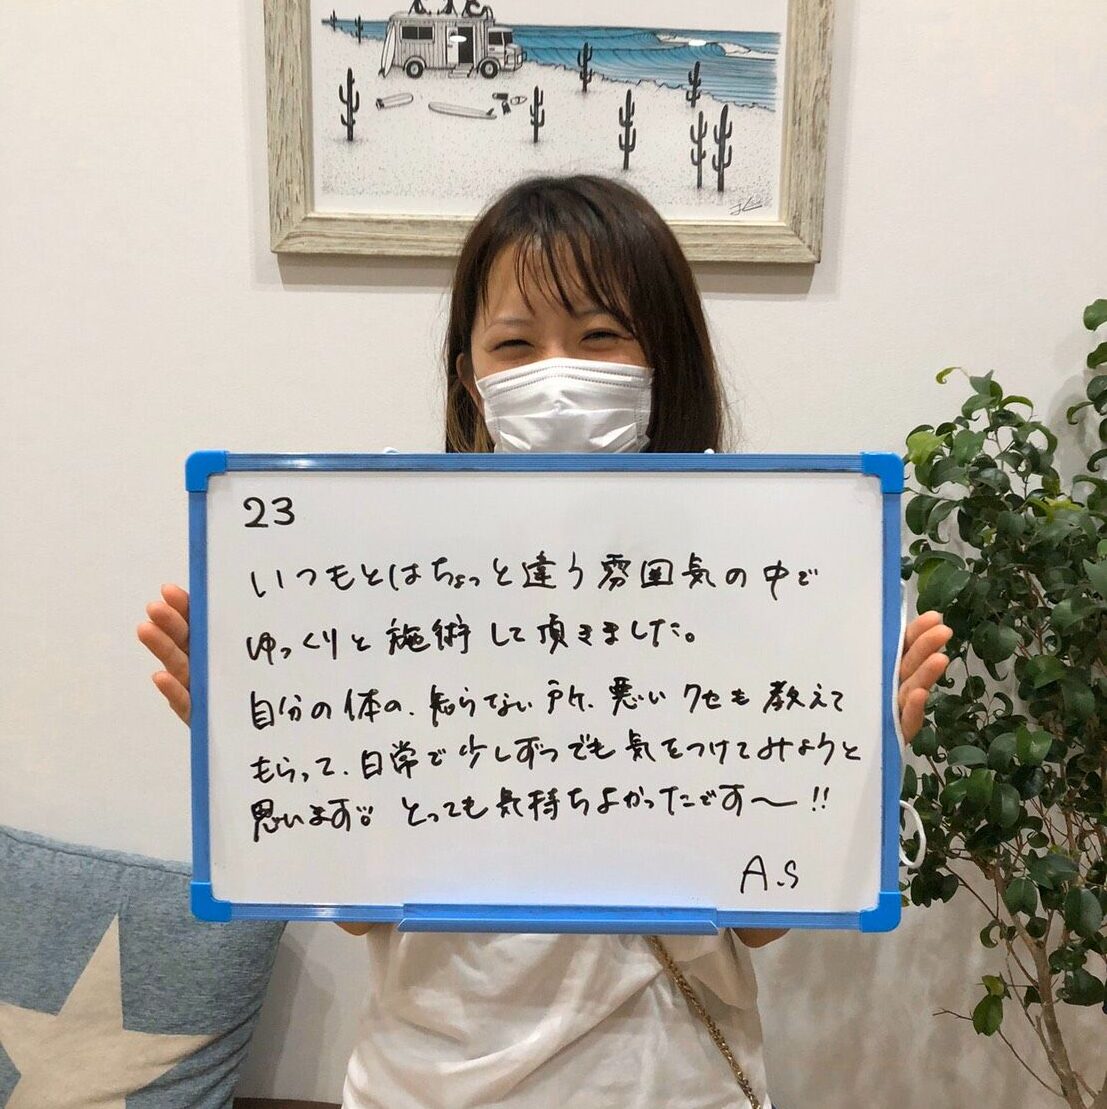 23
いつもとはちょっと違う雰囲気の中で
ゆっくりと施術して頂きました。
自分の体の、知らない所、悪いクセも教えて
もらって、日常で少しずつでも気をつけてみようと
思います。とっても気持ちよかったです〜!!
A.S